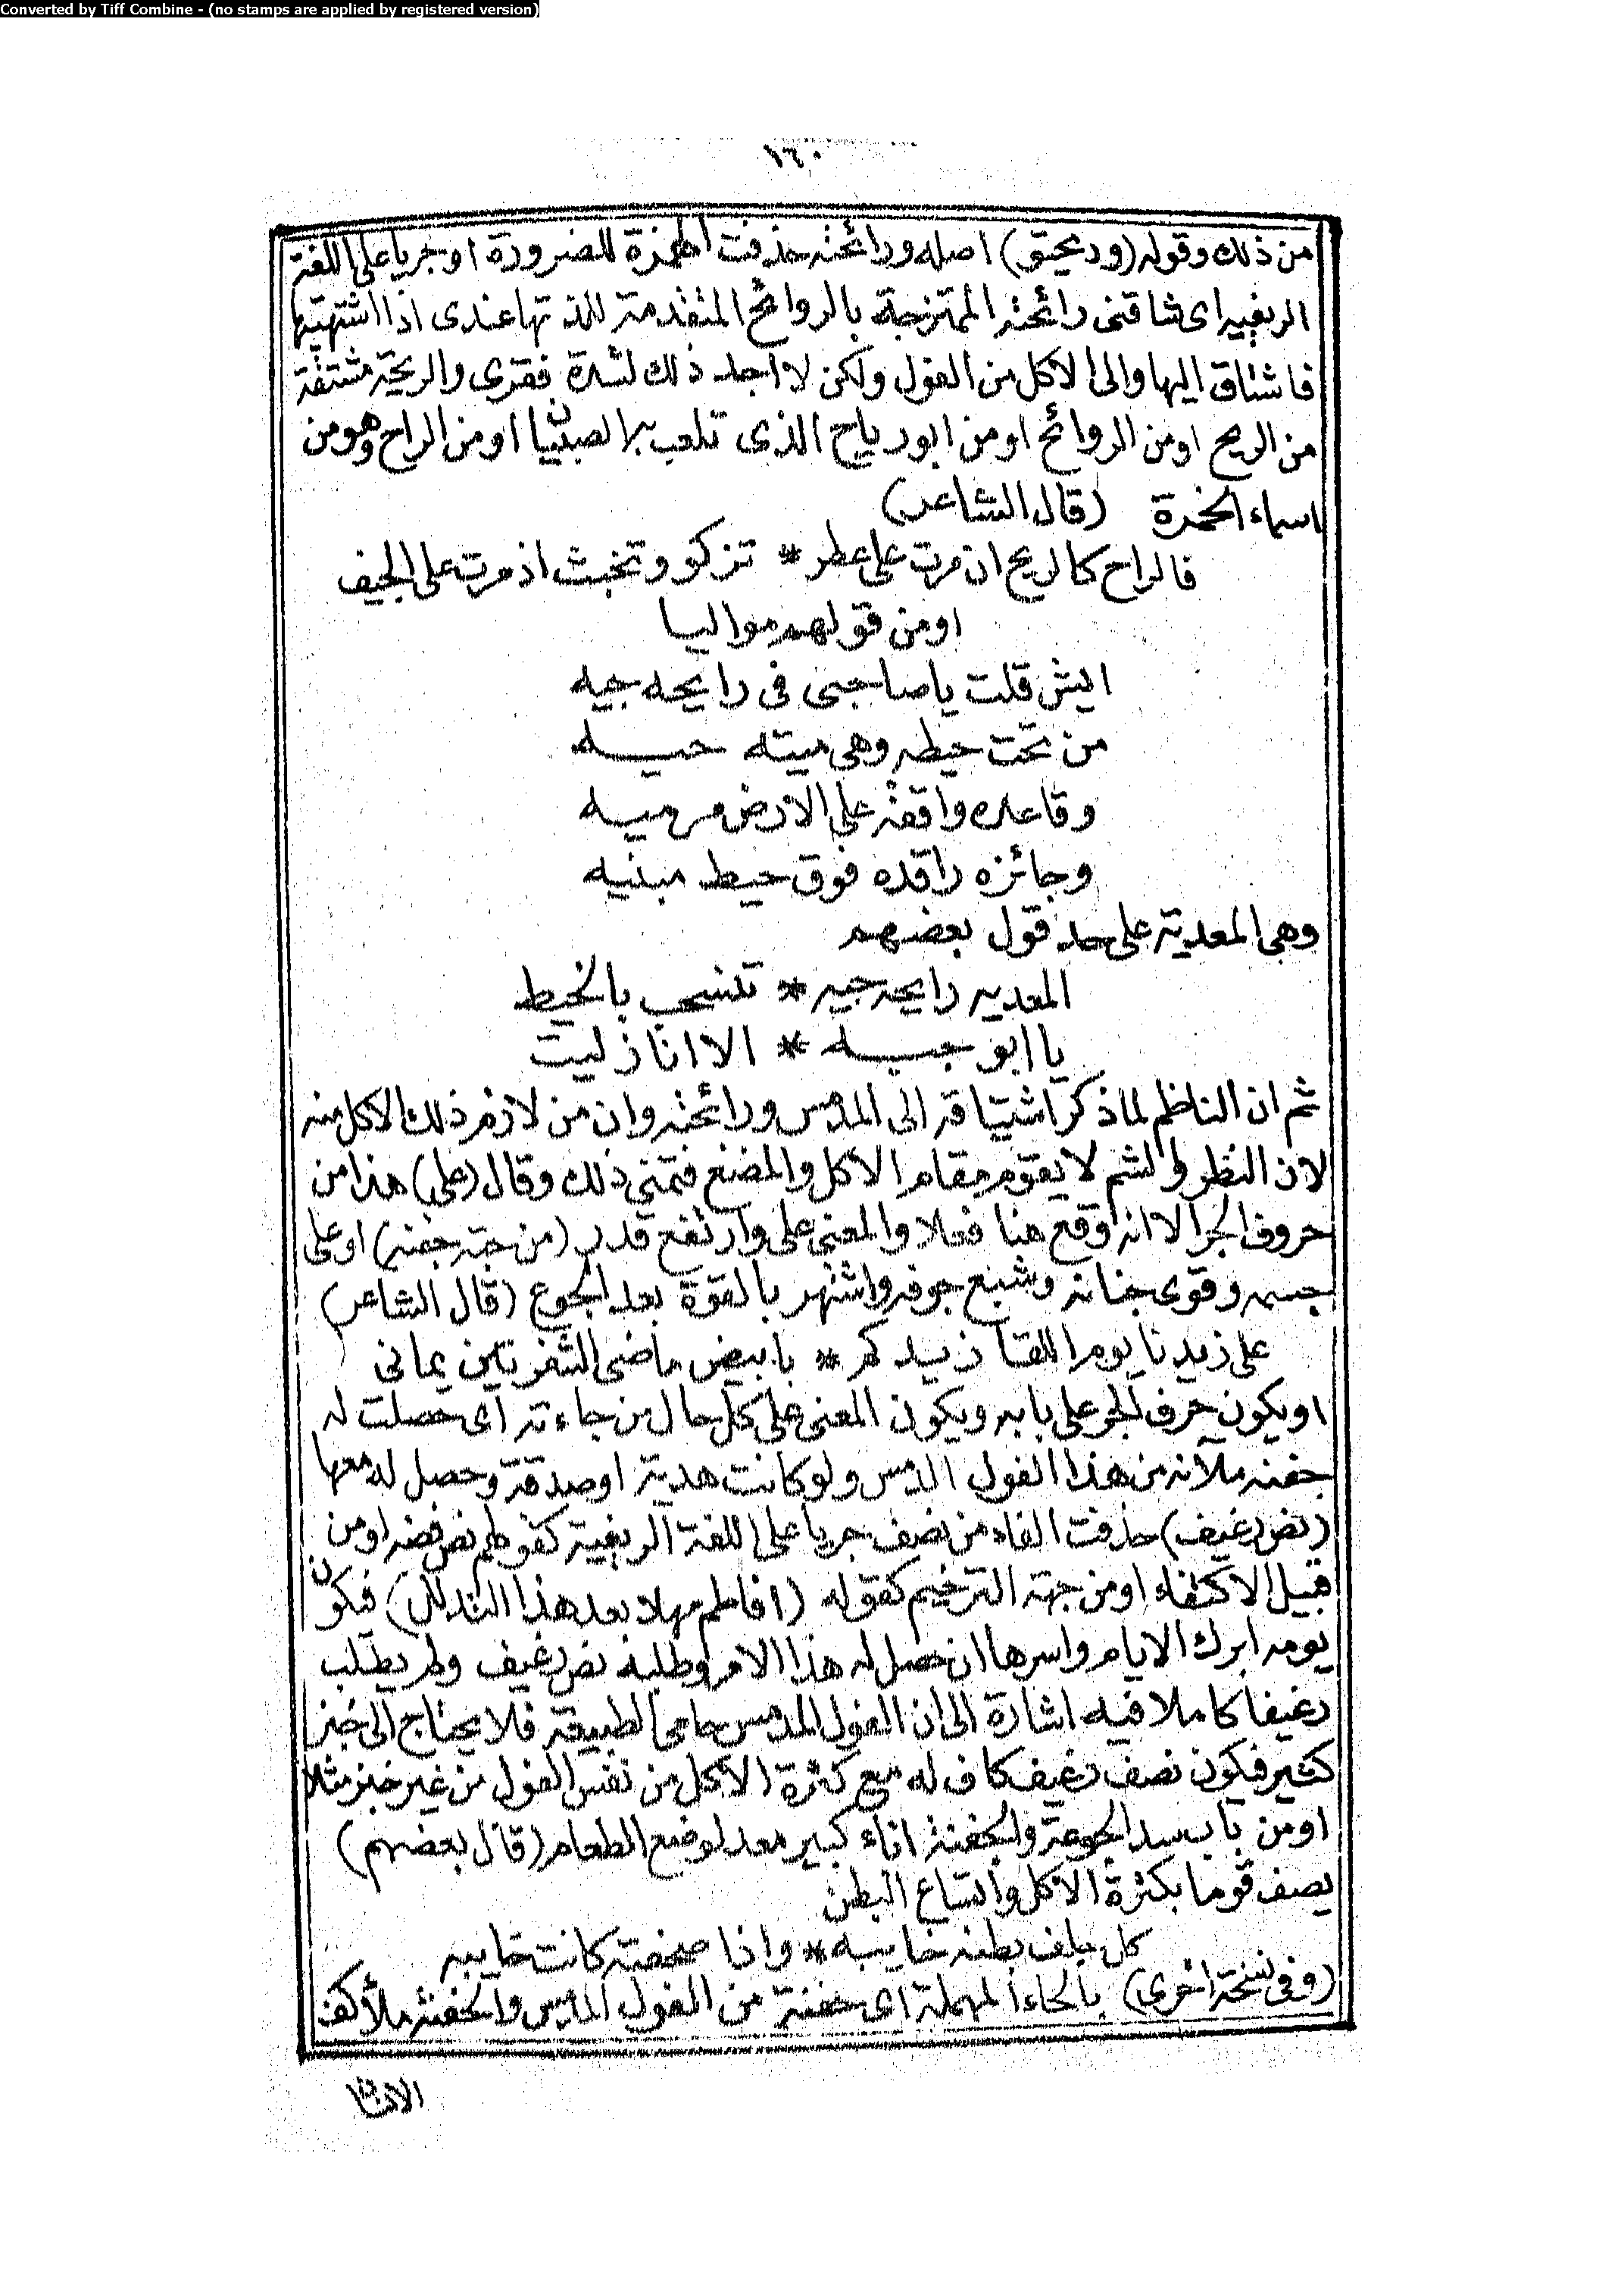 Converted by Tiff Combine - (no stamps are applied by registered version)
١٦٠
من ذلك وقوله (وريحتو) اصله ورائحته حذفت الهمزة للضرورة او جريا على اللغة
الريفية اى شاقنى رائحته الممتزجة بالروائح المتقدمة للذتها عندى اذا اشتهيتها
فاشتاق اليها والى الاكل من الفول ولكن لا اجد ذلك لشدة فقرى والريحة مشتقة
من الريح او من الروائح او من ابو رياح الذى تلعب به الصبيان او من الراح وهو من
اسماء الخمرة (قال الشاعر)
فالراح كالريح ان مرت على عطر * تزكو وتخبث اذ مرت على الجيف
او من قولهم مواليا
ايش قلت يا صاحبى فى رايحه جيه
من تحت حيطه وهى ميته حيه
وقاعده واقفة على الارض مرميه
وجائزه راقده فوق حيط مبنيه
وهى المعدية على حد قول بعضهم
المعديه رايحه جيه * تنسحب بالخيط
يا ابو جبه * الا انا زليت
ثم ان الناظم لما ذكر اشتياقه الى المدمس ورائحته وان من لازم ذلك الاكل منه
لان النظر والشم لا يقوم مقام الاكل والمضغ فتمنى ذلك وقال (على) هذا من
حروف الجر الا انه وقع هنا فعلا والمعنى على وارتفع قدر (من جته جفنه) او على
جسمه وقوى جنانه وشبع جوفه واشتهر بالقوة بعد الجوع (قال الشاعر)
على زيدنا يوم اللقا زيدكم * بابيض ماضى الشفرتين يمانى
او يكون حرف الجر على بابه ويكون المعنى على كل حال من جاءته اى حصلت له
جفنه ملآنه من هذا الفول المدمس ولو كانت هدية او صدقة وحصل له معها
(نص رغيف) حذفت الفاء من نصف جريا على اللغة الريفية كقولهم نص فضه او من
قبيل الاكتفاء او من جهة الترخيم كقوله (افاطم مهلا بعد هذا التدلل) فيكون
يومه ابرك الايام واسرها ان حصل له هذا الامر وطلبه نص رغيف ولم يطلب
رغيفا كاملا فيه اشارة الى ان الفول المدمس حامى الطبيعة فلا يحتاج الى خبز
كثير فيكون نصف رغيف كاف له مع كثرة الاكل من نفس الفول من غير خبز مثلا
او من باب سد الجوعة والجفنة اناء كبير معد لوضع الطعام (قال بعضهم)
يصف قوما بكثرة الاكل واتساع البطن
كل جلف بطنه خابيه * واذا صحفته كانت خابيه
(وفى نسخة اخرى) بالحاء المهملة اى حفنة من الفول المدمس والحفنة ملأ كف
الانسان